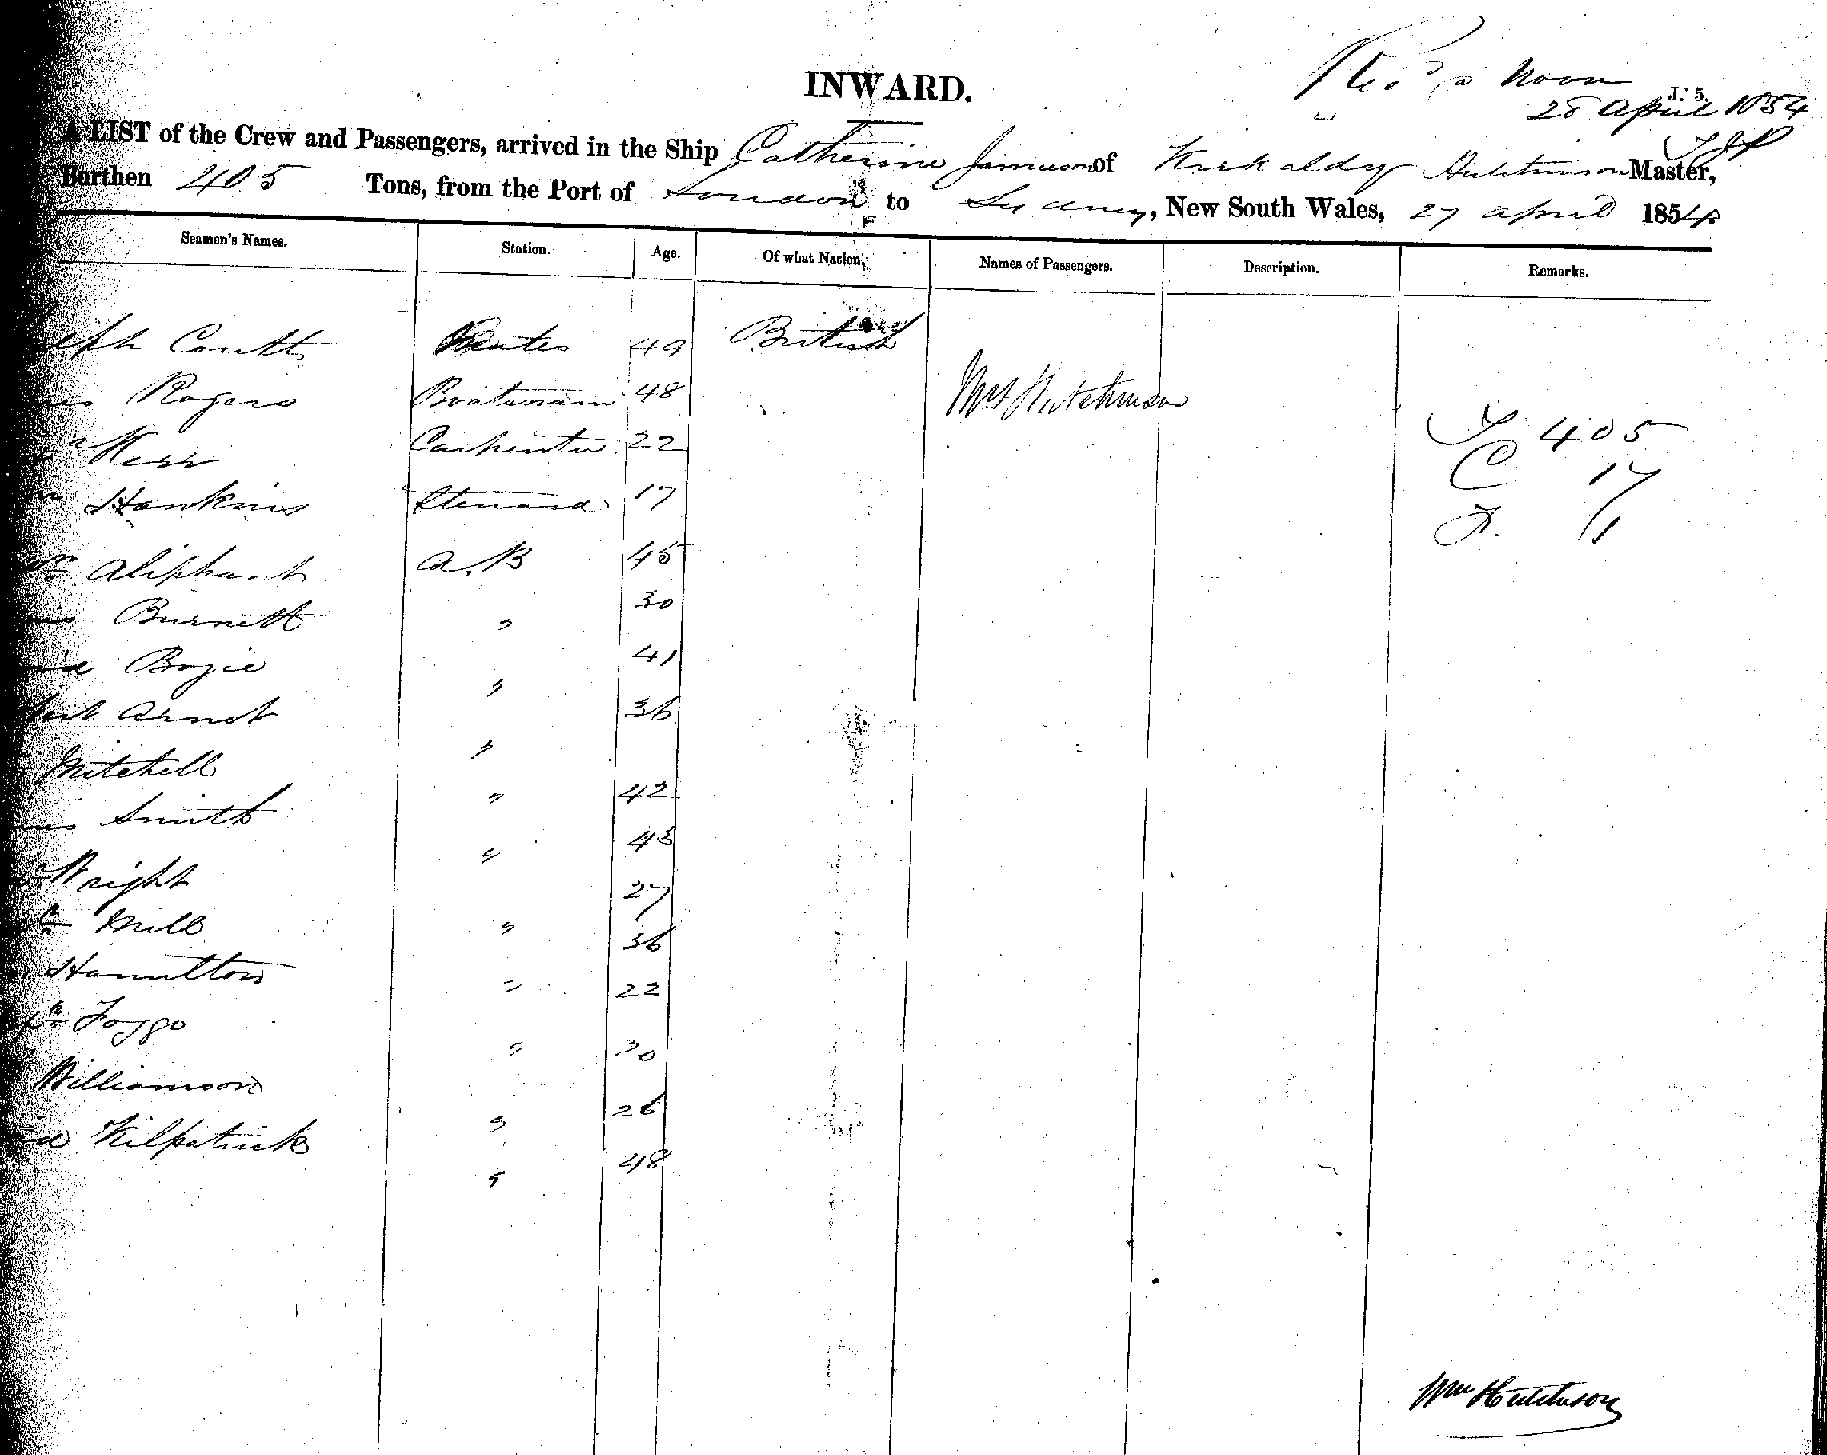 INWARD.
Noon
J. 5.
28 April 1854
A LIST of the Crew and Passengers, arrived in the Ship Catherine Jamieson of Kirkaldy Hutchinson Master,
Burthen 405 Tons, from the Port of London to Sydney, New South Wales, 27 April 1854
Seamen's Names. Station. Age. Of what Nation. Names of Passengers. Description. Remarks.
Coutts 49 British
Rogers Boatswain 48 Mrs Hutchinson
Kerr Carpenter 22 T 405
Hankins Steward 17 C 17
P. 1
Aliphant A.B 45
Burnett " 30
Bogie " 41
Arnot " 36
Mitchell "
Smith " 42
Wright 43
Mill " 27
Hamilton " 36
Foggo " 22
Williamson " 30
Kilpatrick " 26
" 48
Wm Hutchinson